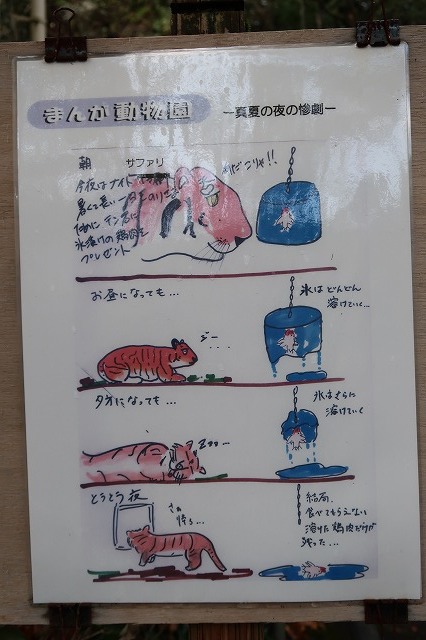 まんが動物園
ー真夏の夜の惨劇ー
朝
サファリ
今夜はナイト
暑くて長い一日をのりこ
ために テン君に
氷漬けの鶏肉を
プレゼント
なんだこりゃ!!
お昼になっても…
ジー‥‥
氷はどんどん
溶けていく…
夕方になっても…
Zzz…
氷はさらに
溶けていく
とうとう夜
さぁ
帰ろ…
結局、
食べてもらえない
溶けた鶏肉だけが
残った…